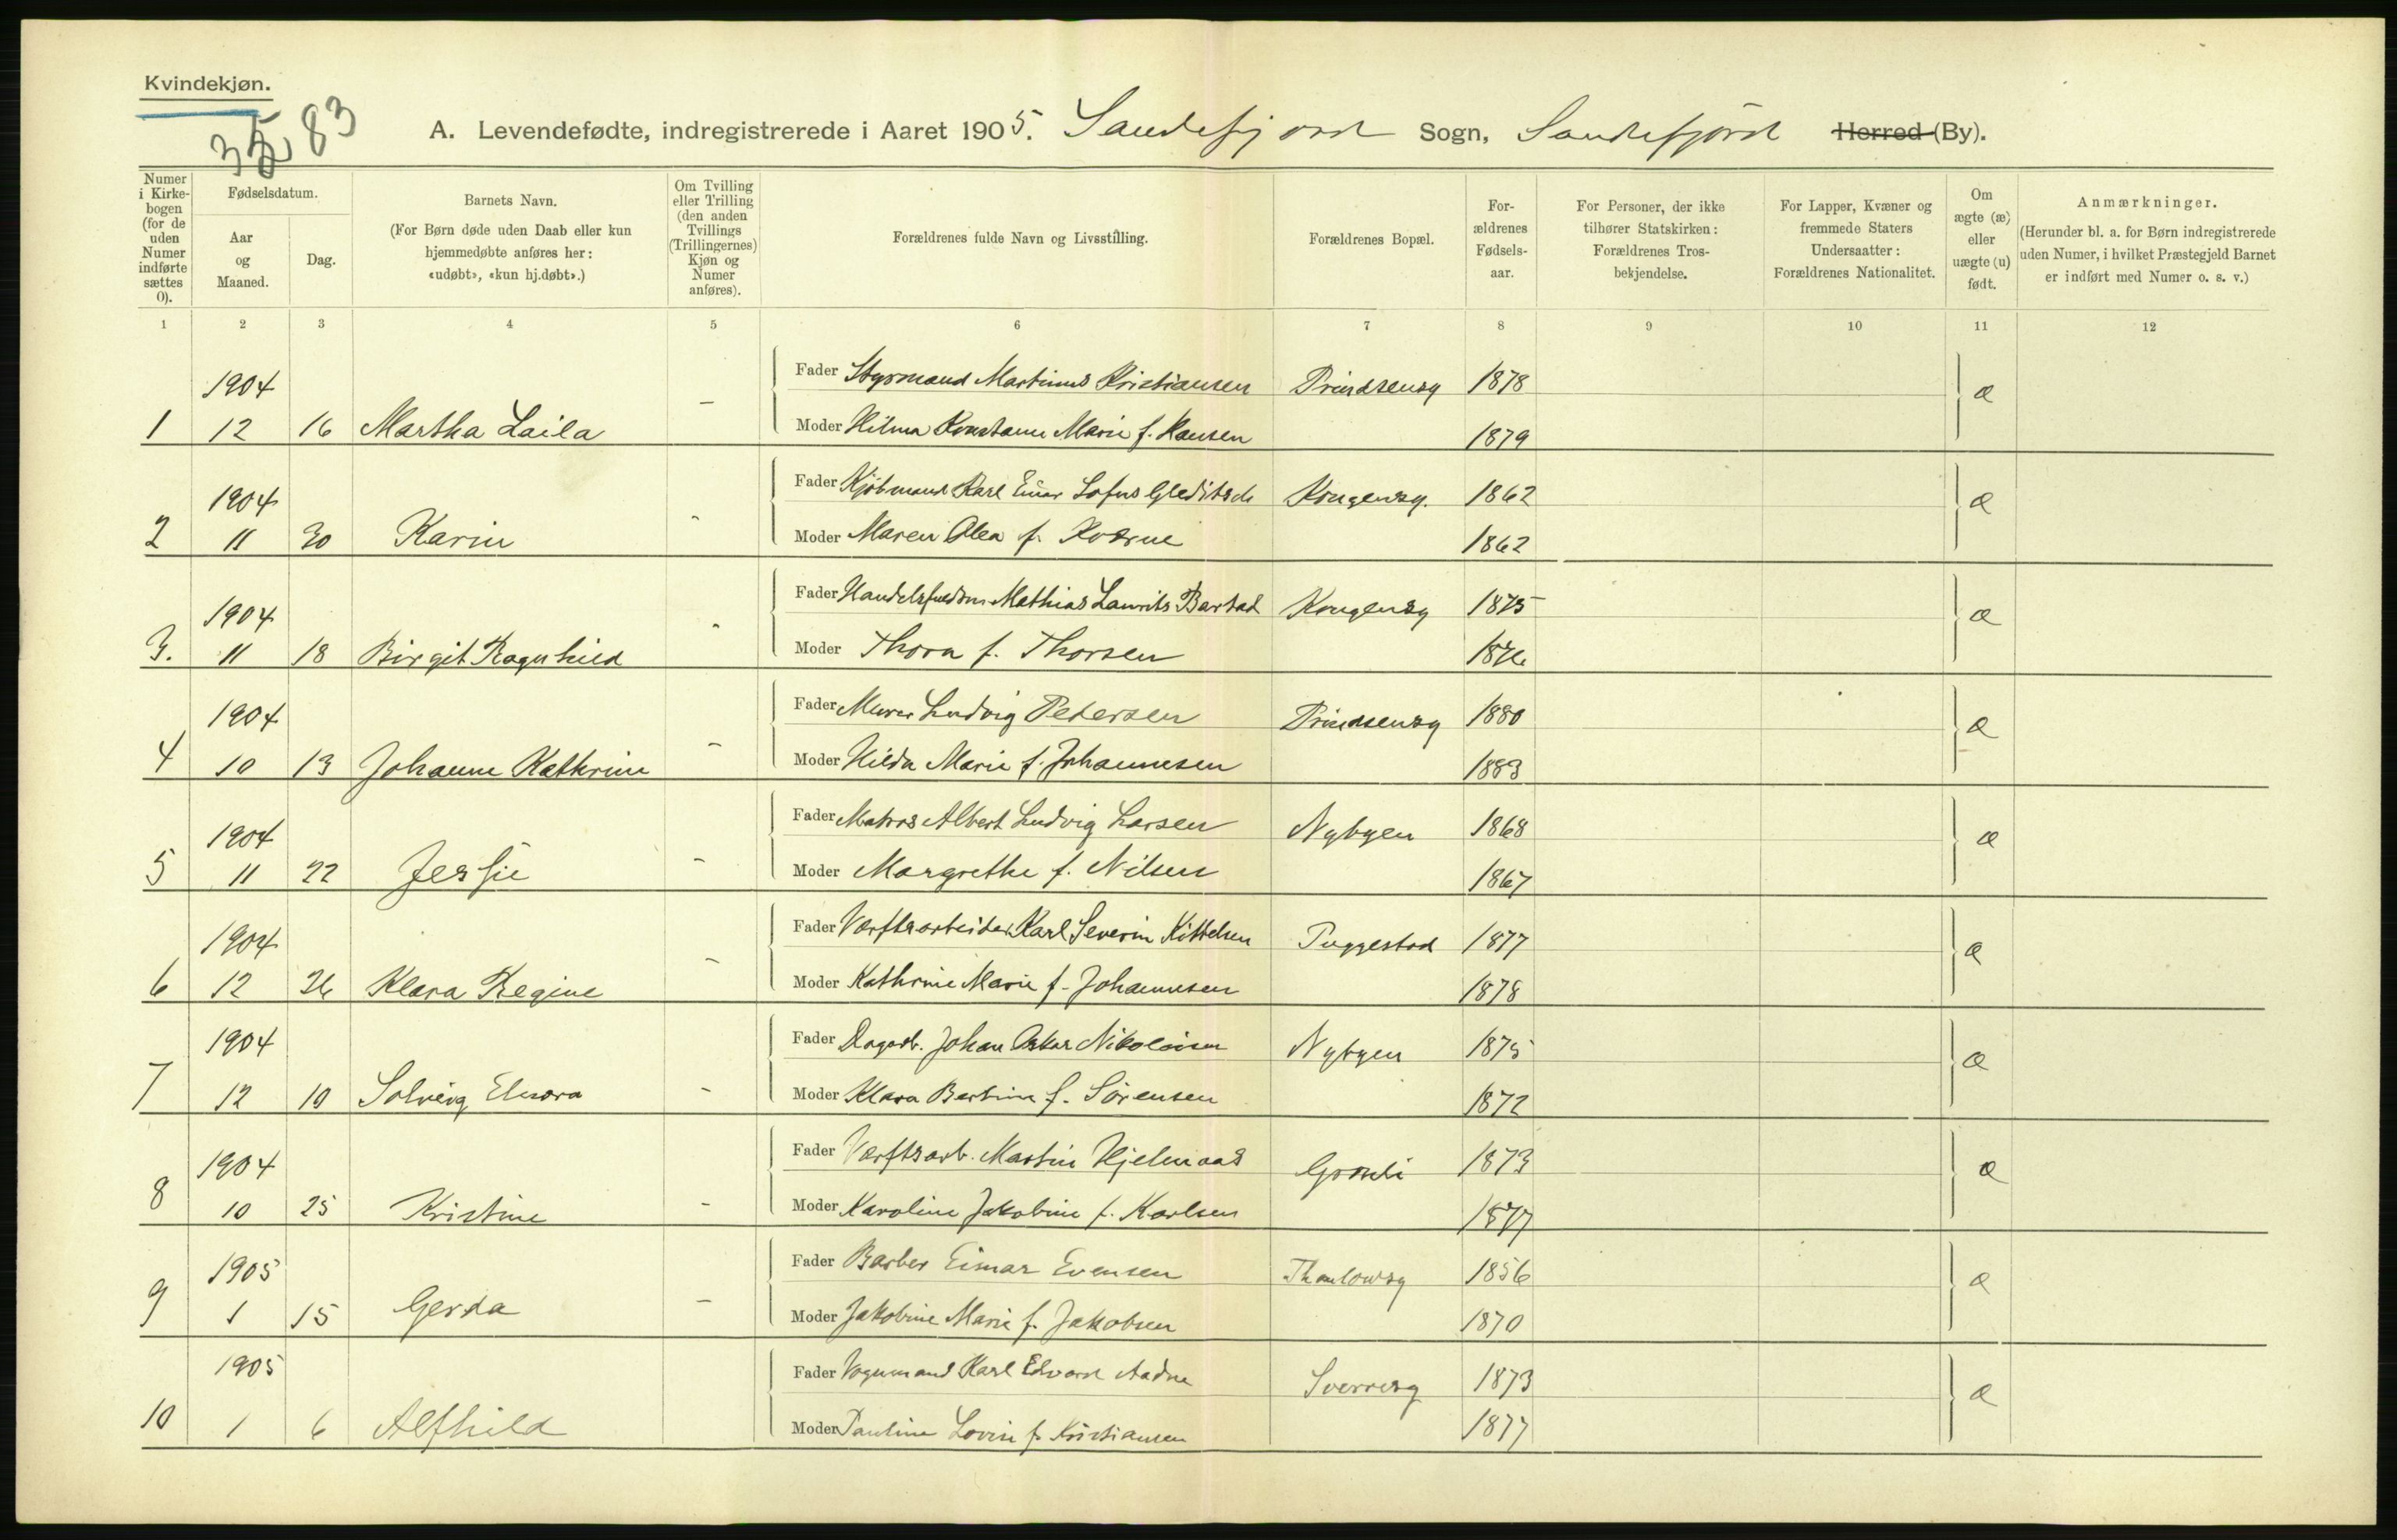 Kvindekjøn.
35 83
A. Levendefødte, indregistrerede i Aaret 1905. Sandefjord Sogn, Sandefjord Herred (By).
Numer i Kirkebogen (for de uden Numer indførte sættes 0).
Fødselsdatum.
Aar og Maaned.
Dag.
Barnets Navn.
(For Børn døde uden Daab eller kun hjemmedøbte anføres her: «udøbt», «kun hj.døbt».)
Om Tvilling eller Trilling (den anden Tvillings (Trillingernes) Kjøn og Numer anføres).
Forældrenes fulde Navn og Livsstilling.
Forældrenes Bopæl.
Forældrenes Fødselsaar.
For Personer, der ikke tilhører Statskirken: Forældrenes Trosbekjendelse.
For Lapper, Kvæner og fremmede Staters Undersaatter: Forældrenes Nationalitet.
Om ægte (æ) eller uægte (u) født.
Anmærkninger.
(Herunder bl. a. for Børn indregistrerede uden Numer, i hvilket Præstegjeld Barnet er indført med Numer o. s. v.)
1 2 3 4 5 6 7 8 9 10 11 12
1904 Fader Styrmand Martinus Kristiansen Prindsensg 1878 æ
1 12 16 Martha Laila - Moder Hilma Konstanse Marie f. Hansen 1879
1904 Fader Kjøbmand Karl Einar Sofus Gleditsch Kongensg. 1862 æ
2 11 30 Karin - Moder Maren Alea f. Kværne 1862
1904 Fader Mathias Laurits Barstad Kongensg 1875 æ
3. 11 18 Birgit Ragnhild - Moder Thora f. Thorsen 1876
1904 Fader Murer Ludvig Petersen Prindsensg 1880 æ
4 10 13 Johanne Kathrine - Moder Hilda Marie f. Johannesen 1883
1904 Fader Matros Albert Ludvig Larsen Nybyen 1868 æ
5 11 22 Jessie - Moder Margrethe f. Nilsen 1867
1904 Fader Værftsarbeider Karl Severin Kittelsen Puggestad 1877 æ
6 12 26 Klara Regine - Moder Kathrine Marie f. Johannesen 1878
1904 Fader Dagarb. Johan Oskar Nikolaisen Nybyen 1875 æ
7 12 10 Solveig Elnora - Moder Klara Bertine f. Sørensen 1872
1904 Fader Værftsarb. Martin Hjelmaas Grønli 1873 æ
8 10 25 Kristine - Moder Karoline Jakobine f. Karlsen 1877
1905 Fader Barber Einar Evensen Thaulowsg 1856 æ
9 1 15 Gerda - Moder Jakobine Marie f. Jakobsen 1870
1905 Fader Vognmand Karl Edvard Aadne Sverresg 1873 æ
10 1 6 Alfhild Moder Pauline Lovise f. Kristiansen 1877